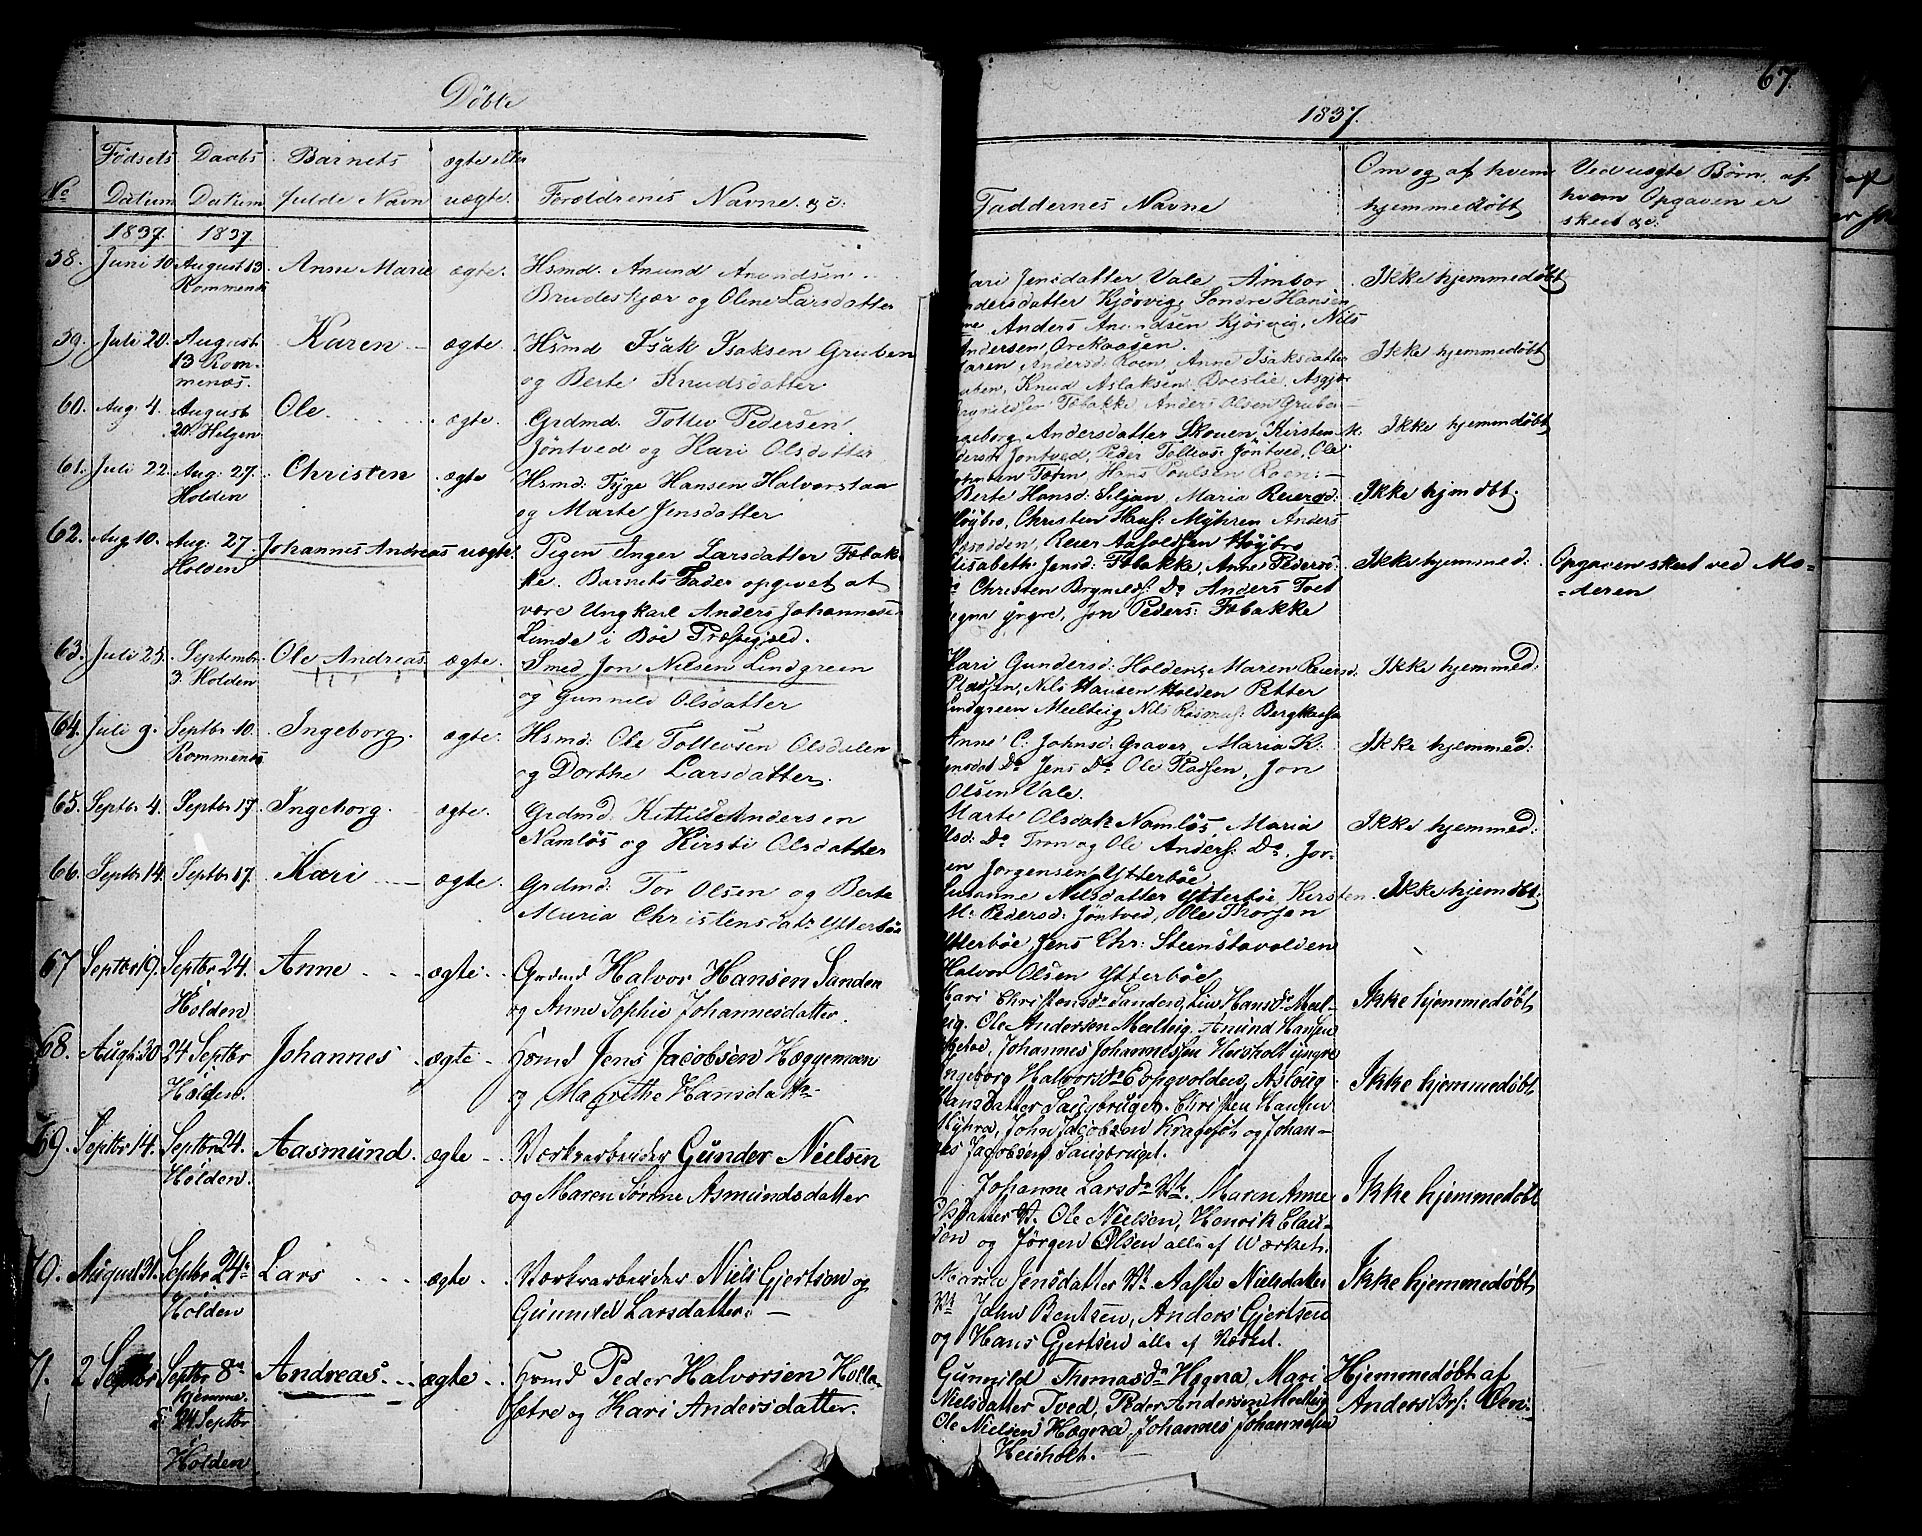 Døbte
1837.
67.
No
Fødsels Datum
Daabs Datum
Barnets fulde Navn
ægte eller uægte.
Forældrenes Navne &c:
Faddernes Navne
Om og af hvem hjemmedøbt
Ved uægte Børn af hvem Opgaven er skeet &c:
1837. 1837
58. Juni 10. August 13 Rommenæs
Anne Marie ægte.
Hsmd. Anund Anundsen
Brudeskjær og Oline Larsdatter
Kari Jensdatter Vale, Ambor
Andersdatter Kjørvig, Sondre Hansen
Anders Anundsen Kjørvig, Nils
Andersen Orekaasen.
Ikke hjemmedøbt
59. Juli 20. August 13 Rommenæs.
Karen ægte.
Hsmd Isak Isaksen Gruben
og Berte Knudsdatter
Maren Andersd. Roen, Anne Isaksdatter
Gruben, Knud Aslaksen Boeslie, Asgjær
Fæbakke, Anders Olsen Gruben
Ikke hjemmedøbt
60. Aug. 4. August 20. Helgen
Ole ægte.
Grdmd. Tollev Pedersen
Jøntved og Kari Olsdatter
Ingeborg Andersdatter Skouen, Kirsten M.
Pedersd. Jøntved, Peder Tollevs: Jøntved, Ole
Hans Poulsen Roen: —
Ikke hjemmdøbt
61. Juli 22. Aug. 27. Holden
Christen ægte
Hsmd: Tyge Hansen Halvorstaa
og Marte Jensdatter
Berte Hansd: Siljan, Maria Reiersd:
Høybro, Christen Hans: Myhren Anders
Reier Høybro
Ikke hjemdøbt.
62. Aug. 10. Aug. 27. Holden
Johannes Andreas uægte.
Pigen Inger Larsdatter Fæbak-
ke. Barnets Fader opgivet at
være Ungkarl Anders Johannes:
Lunde i Bøe Præstegjeld.
Elisabeth Jensd: Fæbakke, Anne Pedersd:
Do Christen Brynilds: Do Anders Tvet
yngre, Jon Peders: Fæbakke
Ikke hjemmed:
Opgaven skeet ved Mo-
-deren
63. Juli 25. Septembr 3. Holden
Ole Andreas ægte.
Smed Jon Nilsen Lindgreen
og Gunnild Olsdatter
Kari Gundersd: Holden, Maren Reiersd
Pladsen, Nils Hansen Holden Petter
Lindgreen Meelteig Nils Rasmus: Bergkaasa
Ikke hjemmed:
64. Juli 9. Septbr 10. Rommenæs
Ingeborg. ægte.
Hsmd: Ole Tollevsen Olsdalen
og Dorthe Larsdatter.
Anne C: Johnsd: Graver, Maria K:
Jensdat Do Jens Do Ole Pladsen, Jon
Olsen Vale.
Ikke hjemmed:
65. Septbr 4. Septbr 17.
Ingeborg. ægte.
Grdmd. Kittil Andersen
Namløs og Kirsti Olsdatter
Marte Olsdatr Namløs, Maria
Olsd: Do Tron og Ole Anders: Do, Jør-
gen Jørgensen Ytterbøe
Ikke hjemmed:
66. Septbr 14. Septbr 17.
Kari ægte.
Grdmd: Tor Olsen og Berte
Maria Christensdatr Ytterbøe
Susanne Nilsdatter Ytterbøe, Kirsten
M: Pedersd: Jøntved, Ole Thorsen
Ytterbøe, Jens Chr: Steenstavolden
Halvor Olsen Ytterbøe
Ikke hjemmdøbt
67 Septbr 19. Septbr 24. Holden
Anne ægte
Grdmd Halvor Hansen Sanden
og Anne Sophie Johannesdatter.
Kari Christensdr Sanden, Liv Hansdr Meel-
teig. Ole Andersen Meelteig. Amund Hansen
Johannes Johannessen Heisholt yngre
Ikke hjemmedøbt
68. Augt. 30. 24 Septbr Holden.
Johannes ægte
Hsmd Jens Jacobsen Hæggemoen
og Magrethe Hansdatter
Ingeborg Halvorsdr Aslaug
Hansdatter Saugbruget. Christen Hansen
Myhra, John Jacobsen Kragsjøt og Johan-
nes Jacobsen Saugbruget.
Ikke hjemmedøbt
69. Septbr 14. Septbr 24. Holden.
Aasmund. ægte
Værksarbeider Gunder Nielsen
og Maren Sørine Asmundsdatter
Johanne Larsdr Vt. Maren Anne
Olsdatter Vt. Ole Nielsen, Henrik Clau-
sen og Jørgen Olsen alle af Værket.
Ikke hjemmedøbt
70. August 31. Septbr 24. Holden
Lars ægte
Værksarbeider Niels Gjertsen og
Gunnild Larsdatter. —
Maria Jensdatter Vt. Aaste Nielsdatter
Vt John Bentsen, Anders Gjertsen
og Hans Gjertsen alle af Værket.
Ikke hjemmedøbt
71. 2 Septbr Septbr 8de hjemme. 24 Septbr Holden
Andreas. ægte
Hsmd Peder Halvorsen Holla-
sætre og Kari Andersdatter.
Gunnild Thomasdr Høgra Mari
Nielsdatter Tved, Peder Andersen Meelteig
Ole Nielsen Høgra, Johannes Johannesen
Heisholt.
Hjemmedøbt af
Anders